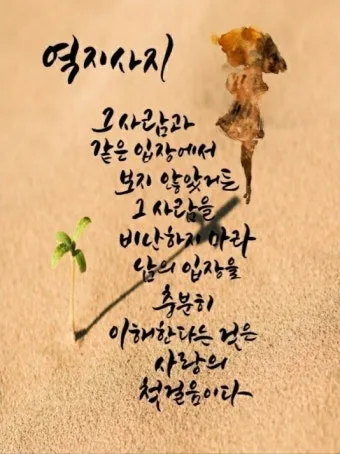 역지사지
그 사람과
같은 입장에서
보지 않았거든
그 사람을
비난하지 마라
남의 입장을
충분히
이해한다는 것은
사랑의
첫걸음이다